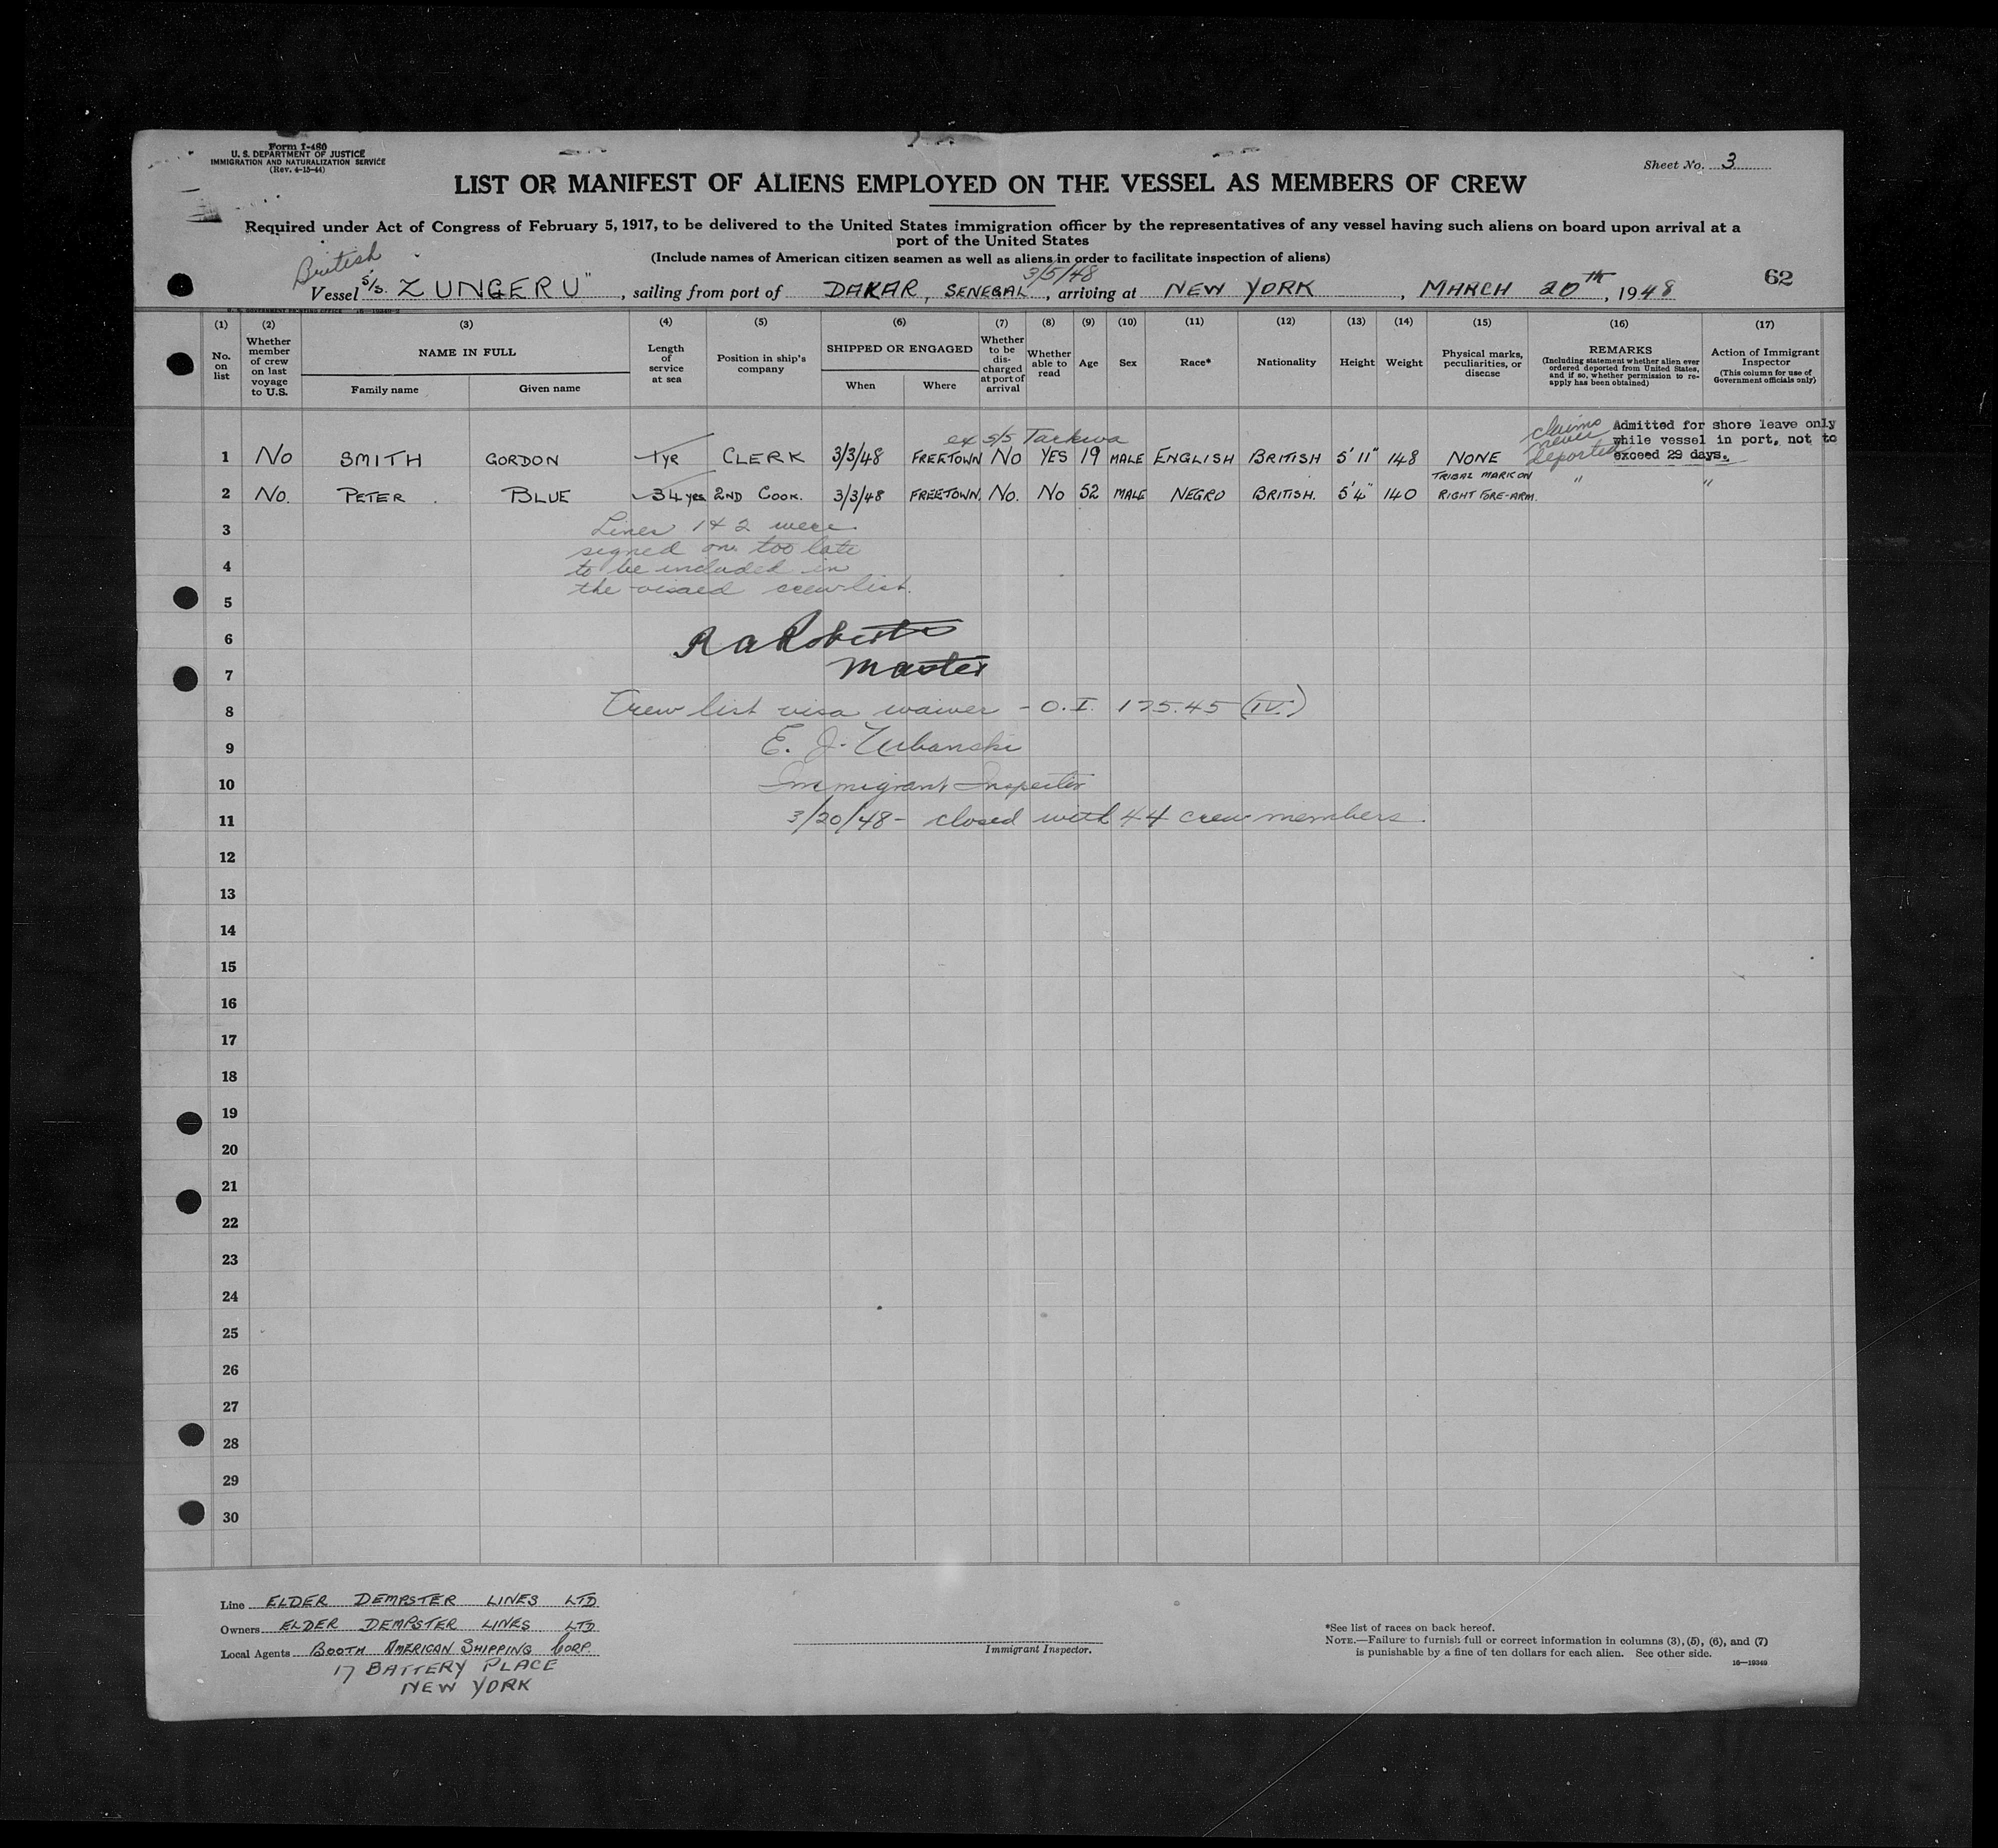 Form I-480
U. S. DEPARTMENT OF JUSTICE
IMMIGRATION AND NATURALIZATION SERVICE
(Rev. 4-15-44)
Sheet No. 3
LIST OR MANIFEST OF ALIENS EMPLOYED ON THE VESSEL AS MEMBERS OF CREW
Required under Act of Congress of February 5, 1917, to be delivered to the United States immigration officer by the representatives of any vessel having such aliens on board upon arrival at a
port of the United States
(Include names of American citizen seamen as well as aliens in order to facilitate inspection of aliens)
British
3/5/48
62
Vessel S/S. ZUNGERU", sailing from port of DAKAR, SENEGAL, arriving at NEW YORK, MARCH 20th, 1948
(1) (2) (3) (4) (5) (6) (7) (8) (9) (10) (11) (12) (13) (14) (15) (16) (17)
No. on list
Whether member of crew on last voyage to U.S.
NAME IN FULL
Family name
Given name
Length of service at sea
Position in ship's company
SHIPPED OR ENGAGED
When
Where
Whether to be discharged at port of arrival
Whether able to read
Age
Sex
Race*
Nationality
Height
Weight
Physical marks, peculiarities, or disease
REMARKS
(Including statement whether alien ever ordered deported from United States, and if so, whether permission to reapply has been obtained)
Action of Immigrant Inspector
(This column for use of Government officials only)
ex S/S Tarkwa
1 No SMITH GORDON 1 yr CLERK 3/3/48 FREETOWN No YES 19 MALE ENGLISH BRITISH 5' 11" 148 NONE claims never deported Admitted for shore leave only while vessel in port, not to exceed 29 days.
2 No. PETER BLUE 34 yrs 2ND COOK. 3/3/48 FREETOWN. No. No 52 MALE NEGRO BRITISH. 5'4" 140 TRIBAL MARK ON RIGHT FORE-ARM. " "
3 Lines 1 & 2 were
signed on too late
4 to be included in
5 the visaed crew list.
6 R a Roberts
7 Master
8 Crew list visa waiver - O.I. 175.45 (IV.)
9 E. J. Urbanski
10 Immigrant Inspector
11 3/20/48 - closed with 44 crew members.
12
13
14
15
16
17
18
19
20
21
22
23
24
25
26
27
28
29
30
Line ELDER DEMPSTER LINES LTD
Owners ELDER DEMPSTER LINES LTD
Local Agents BOOTH AMERICAN SHIPPING CORP.
17 BATTERY PLACE
NEW YORK
Immigrant Inspector.
*See list of races on back hereof.
NOTE.—Failure to furnish full or correct information in columns (3), (5), (6), and (7)
is punishable by a fine of ten dollars for each alien. See other side.
16—19349